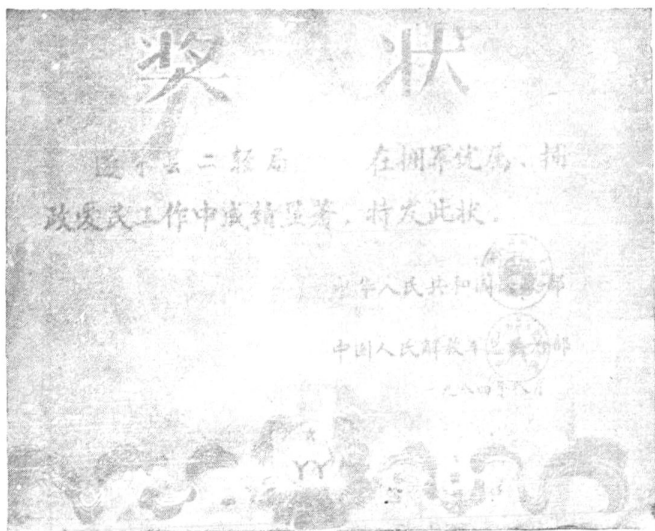 奖 状
遂宁县二轻局 在拥军优属、拥
政爱民工作中成绩显著,特发此状。
中华人民共和国民政部
中国人民解放军总政治部
一九八四年八月